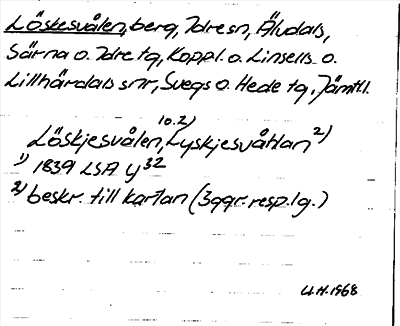 Löskesvålen, berg, Idre sn, Älvdals,
Särna o. Idre tg, Koppl. o. Linsells o.
Lillhärdals snr, Svegs o. Hede tg, Jämtl.
Löskjesvålen, 1o.2) Lyskjesvåhlan 2)
1) 1839 LSA y 32
2) beskr. till kartan (3ggr. resp. 1g.)
U.H. 1968